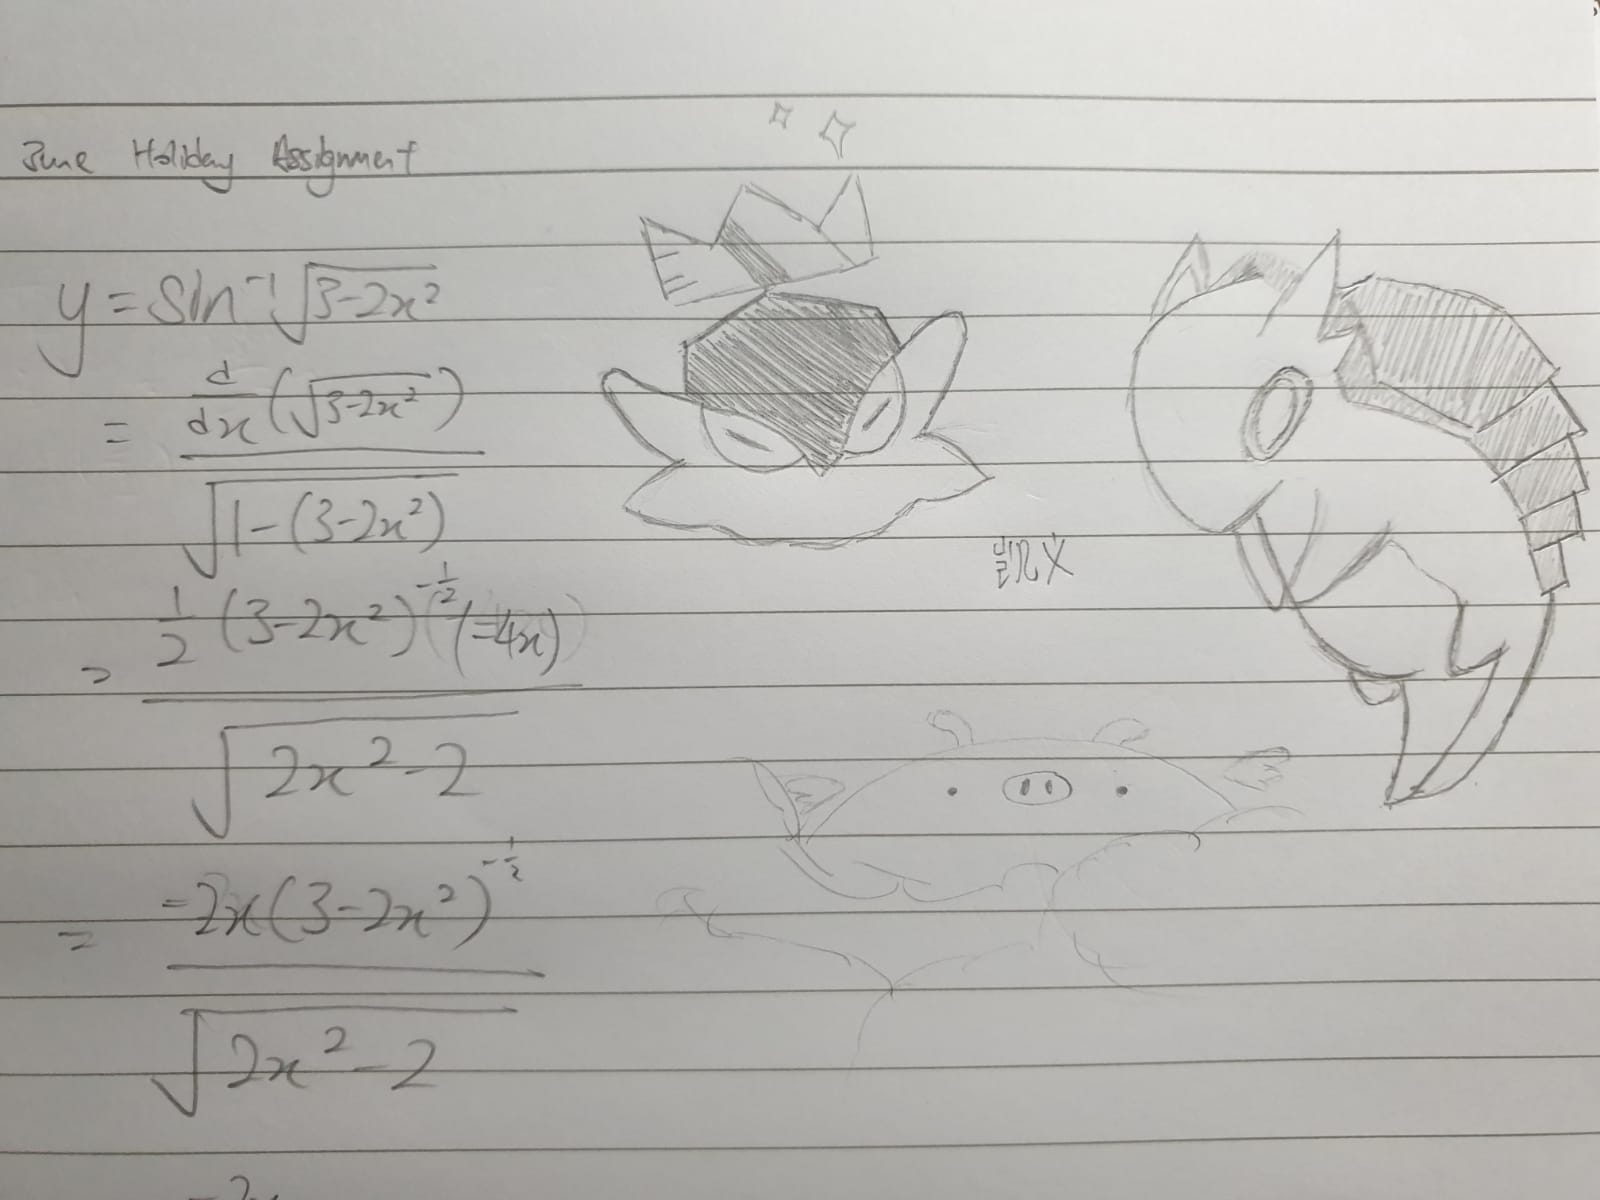 June Holiday Assignment
y = sin⁻¹√(3-2x²)
= d/dx(√(3-2x²)) / √(1-(3-2x²))
= 1/2 (3-2x²)^(-1/2) (-4x) / √(2x²-2)
凯义
= -2x(3-2x²)^(-1/2) / √(2x²-2)